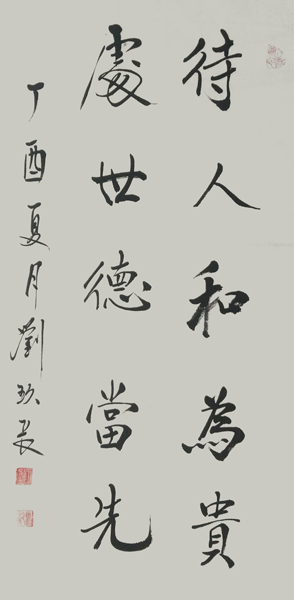 待人和為貴
處世德當先
丁酉夏月劉玖長